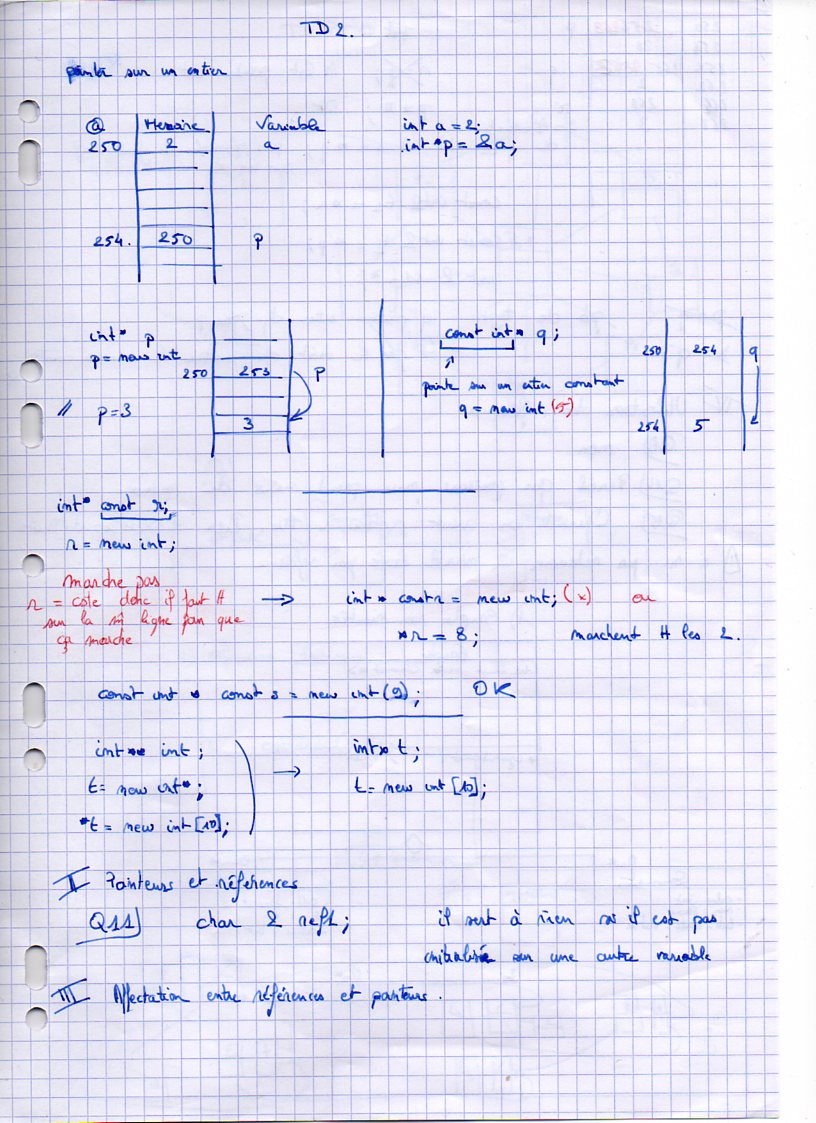 TD 2.
pointe sur un entier
@ Memoire Variable
250 2 a
254. 250 p
int a = 2;
int *p = &a;
int* p
p = new int
250 253 p
// p = 3
3
const int* q;
pointe sur un entier constant
q = new int (5)
250 254 q
254 5
int* const r;
r = new int;
marche pas
r = cste donc il faut tt
sur la m̂ ligne pour que
ça marche
→ int * const r = new int; (x) ou
*r = 8; marchent tt les 2.
const int * const s = new int (9); OK
int** int;
t = new int*;
*t = new int [10];
→ int* t;
t = new int [10];
II Pointeurs et références
Q11) char & ref1; il sert à rien si il est pas
initialisée sur une autre variable
III Affectation entre références et pointeurs.